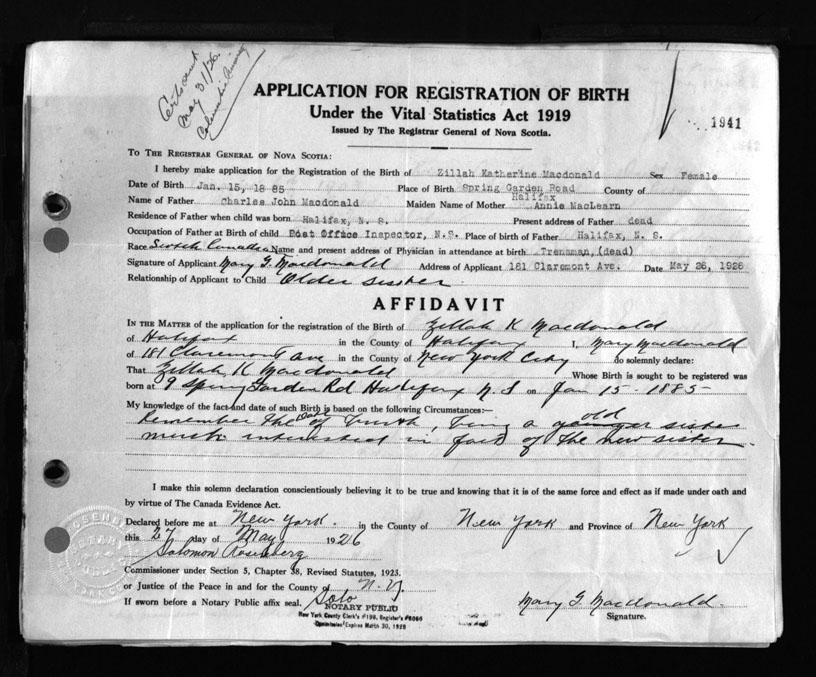 Cert sent
May 31/26
APPLICATION FOR REGISTRATION OF BIRTH
Under the Vital Statistics Act 1919
Issued by The Registrar General of Nova Scotia.
1941
TO THE REGISTRAR GENERAL OF NOVA SCOTIA:
I hereby make application for the Registration of the Birth of Zillah Katherine Macdonald Sex Female
Date of Birth Jan. 15, 18 85 Place of Birth Spring Garden Road County of
Halifax
Name of Father Charles John Macdonald Maiden Name of Mother Annie MacLearn
Residence of Father when child was born Halifax, N. S. Present address of Father dead
Occupation of Father at Birth of child Post Office Inspector, N.S. Place of birth of Father Halifax, N. S.
Race Scotch Canadian Name and present address of Physician in attendance at birth Trenaman, (dead)
Signature of Applicant Mary G. Macdonald Address of Applicant 181 Claremont Ave. Date May 26, 1926
Relationship of Applicant to Child Older sister.
AFFIDAVIT
IN THE MATTER of the application for the registration of the Birth of Zillah K Macdonald
of Halifax in the County of Halifax I, Mary Macdonald
of 181 Claremont Ave in the County of New York City do solemnly declare:
That Zillah K Macdonald Whose Birth is sought to be registered was
born at 9 Spring Garden Rd Halifax N.S on Jan 15 - 1885
My knowledge of the fact and date of such Birth is based on the following Circumstances:—
old
remember the date of birth, being a younger sister
much interested in fact of the new sister.
I make this solemn declaration conscientiously believing it to be true and knowing that it is of the same force and effect as if made under oath and
by virtue of The Canada Evidence Act.
Declared before me at New York. in the County of New York and Province of New York
this 27 day of May 1926
Solomon Rosenberg
Commissioner under Section 5, Chapter 38, Revised Statutes, 1923.
or Justice of the Peace in and for the County N.Y.
If sworn before a Notary Public affix seal.
NOTARY PUBLIC
New York County Clerk's #198, Register's #8066
Commission Expires March 30, 1928
Mary G Macdonald.
Signature.